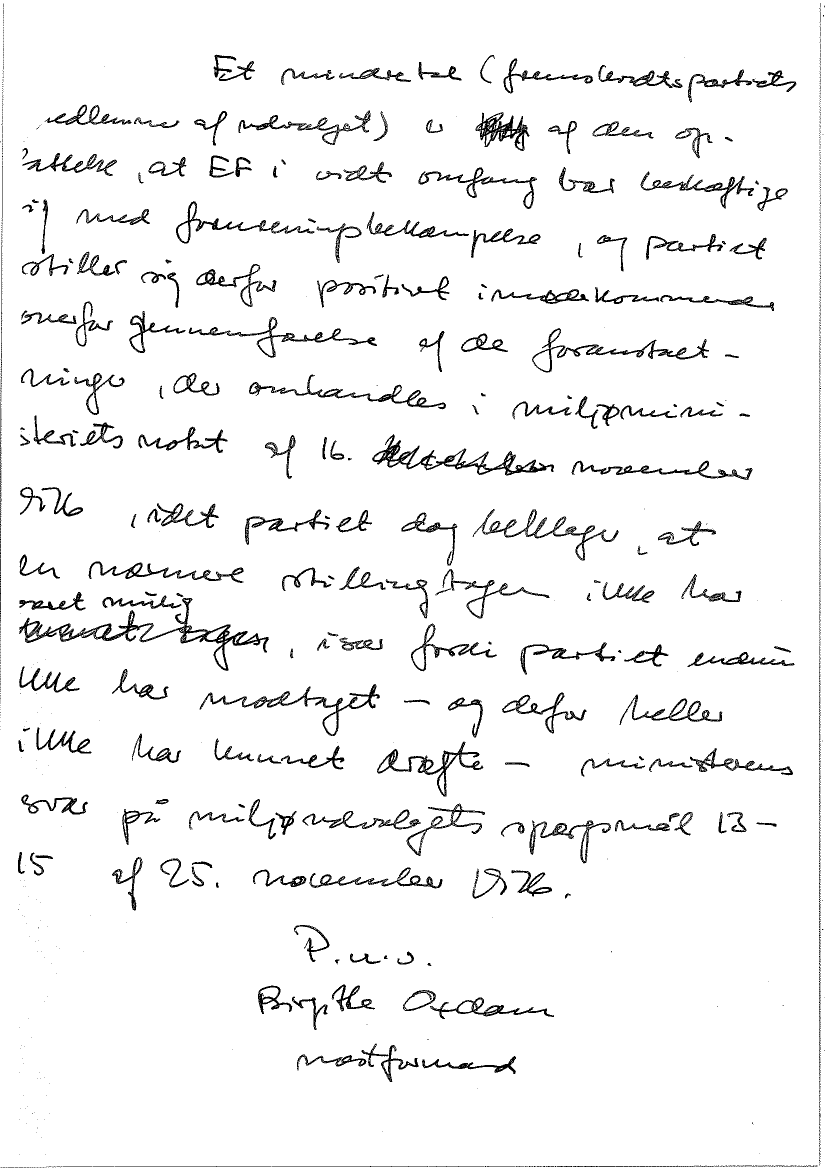 Et mindretal (fremskridtspartiets
medlemmer af udvalget) er af den op-
fattelse, at EF i vidt omfang bør beskæftige
sig med forureningsbekæmpelse, og partiet
stiller sig derfor positivt imødekommende
overfor gennemførelse af de foranstalt-
ninger, der omhandles i miljømini-
steriets notat af 16. november
1976, idet partiet dog beklager, at
en nærmere stillingtagen ikke har
været mulig
, især fordi partiet endnu
ikke har modtaget – og derfor heller
ikke har kunnet drøfte – ministerens
svar på miljøudvalgets spørgsmål 13–
15 af 25. november 1976.
P.u.v.
Birgithe Oxdam
næstformand